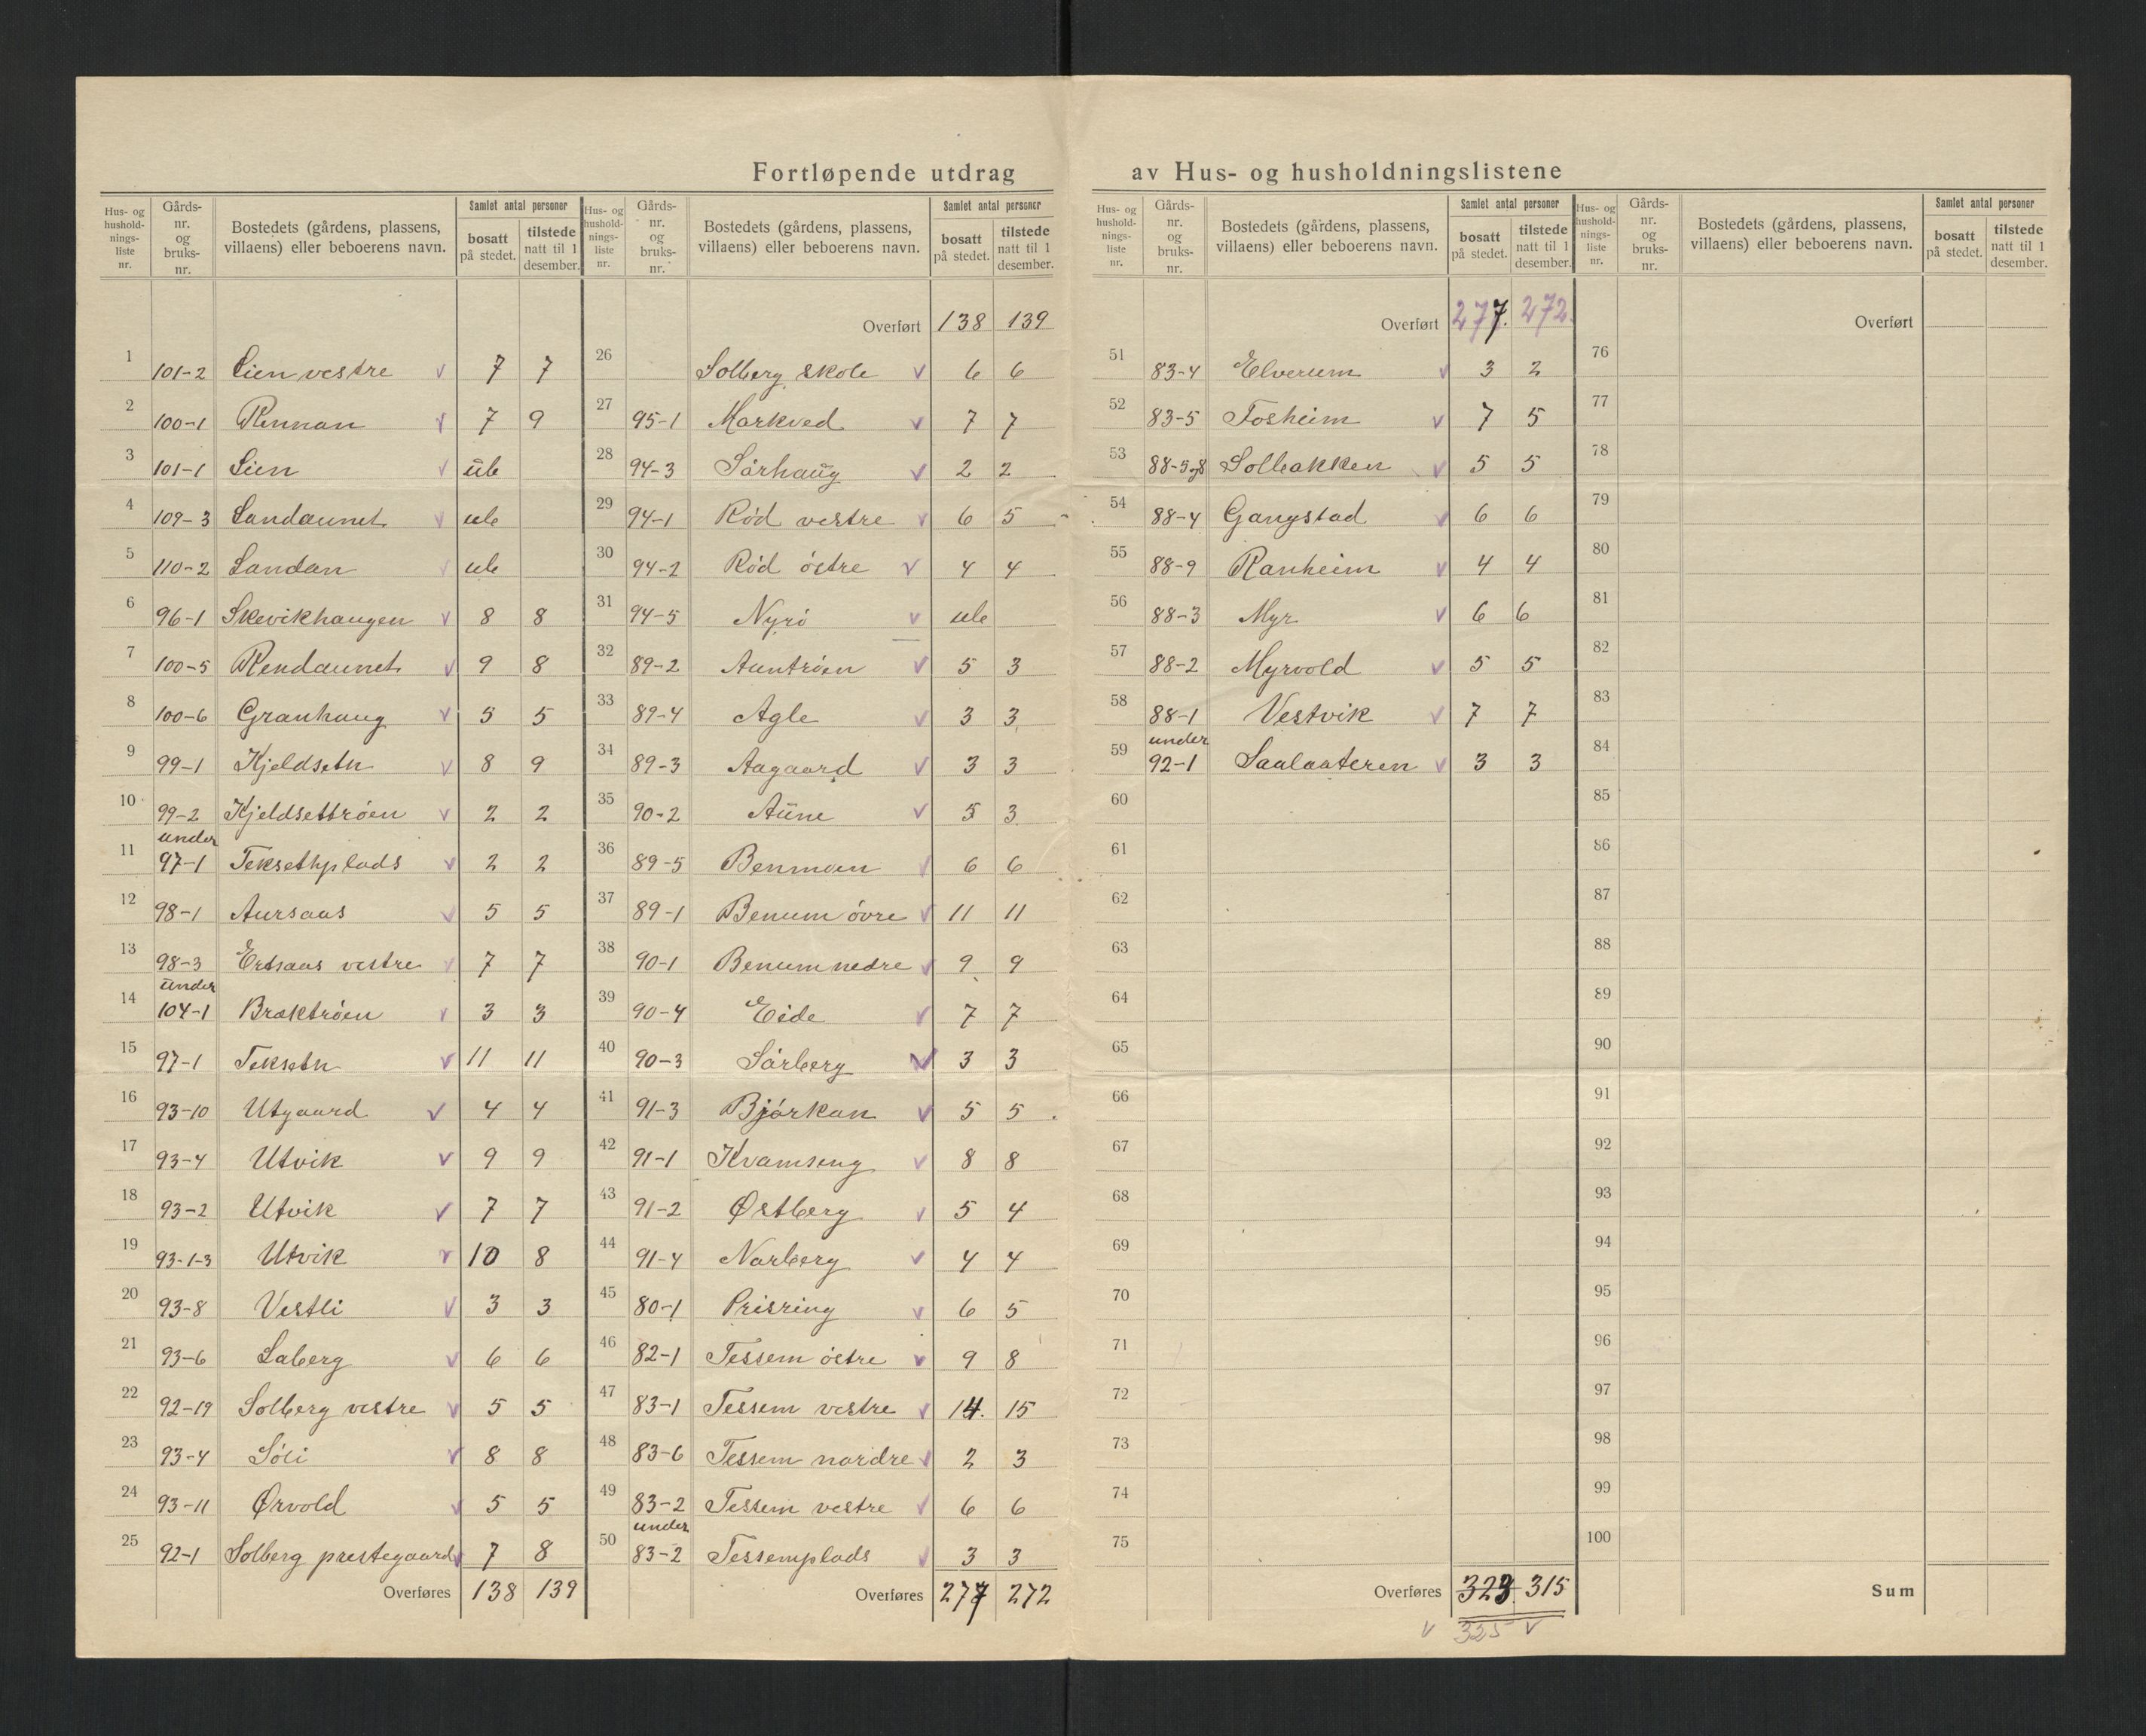 Fortløpende utdrag av Hus- og husholdningslistene
Hus- og hushold- nings- liste nr. Gårds- nr. og bruks- nr. Bostedets (gårdens, plassens, villaens) eller beboerens navn. Samlet antal personer bosatt på stedet. tilstede natt til 1 desember.
1 101-2 Lien vestre v 7 7
2 100-1 Rennan v 7 9
3 101-1 Lien v ub
4 109-3 Sandaunet v ub
5 110-2 Sandan v ub
6 96-1 Skevikhaugen v 8 8
7 100-5 Rendaunet v 9 8
8 100-6 Granhaug v 5 5
9 99-1 Kjeldsetn v 8 9
10 99-2 Kjeldsettrøen v 2 2
11 under 97-1 Teksethplads v 2 2
12 98-1 Aursaas v 5 5
13 98-3 Ertsaas vestre v 7 7
14 under 104-1 Braktrøen v 3 3
15 97-1 Teksetn v 11 11
16 93-10 Utgaard v 4 4
17 93-4 Utvik v 9 9
18 93-2 Utvik v 7 7
19 93-1-3 Utvik v 10 8
20 93-8 Vestli v 3 3
21 93-6 Saberg v 6 6
22 92-19 Solberg vestre v 5 5
23 93-4 Søli v 8 8
24 93-11 Ørvold v 5 5
25 92-1 Solberg prestegaard v 7 8
Overføres 138 139
Hus- og hushold- nings- liste nr. Gårds- nr. og bruks- nr. Bostedets (gårdens, plassens, villaens) eller beboerens navn. Samlet antal personer bosatt på stedet. tilstede natt til 1 desember.
Overført 138 139
26 Solberg skole v 6 6
27 95-1 Markved v 7 7
28 94-3 Sørhaug v 2 2
29 94-1 Rød vestre v 6 5
30 94-2 Rød østre v 4 4
31 94-5 Nyrø v ub
32 89-2 Auntrøen v 5 3
33 89-4 Agle v 3 3
34 89-3 Aagaard v 3 3
35 90-2 Aune v 5 3
36 89-5 Benmoen v 6 6
37 89-1 Benum øvre v 11 11
38 90-1 Benum nedre v 9 9
39 90-4 Eide v 7 7
40 90-3 Sørberg v 3 3
41 91-3 Bjørkan v 5 5
42 91-1 Kvamseng v 8 8
43 91-2 Østberg v 5 4
44 91-4 Norberg v 4 4
45 80-1 Prisring v 6 5
46 82-1 Tessem østre v 9 8
47 83-1 Tessem vestre v 14. 15
48 83-6 Tessem nordre v 2 3
49 83-2 Tessem vestre v 6 6
50 under 83-2 Tessemplads v 3 3
Overføres 277 272
Hus- og hushold- nings- liste nr. Gårds- nr. og bruks- nr. Bostedets (gårdens, plassens, villaens) eller beboerens navn. Samlet antal personer bosatt på stedet. tilstede natt til 1 desember.
Overført 277. 272.
51 83-4 Elverum v 3 2
52 83-5 Fosheim v 7 5
53 88-5og8 Solbakken v 5 5
54 88-4 Gangstad v 6 6
55 88-9 Ranheim v 4 4
56 88-3 Myr v 6 6
57 88-2 Myrvold v 5 5
58 88-1 Vestvik v 7 7
59 under 92-1 Saalaateren v 3 3
60
61
62
63
64
65
66
67
68
69
70
71
72
73
74
75
Overføres 323 315
v 325 v
Hus- og hushold- nings- liste nr. Gårds- nr. og bruks- nr. Bostedets (gårdens, plassens, villaens) eller beboerens navn. Samlet antal personer bosatt på stedet. tilstede natt til 1 desember.
Overført
76
77
78
79
80
81
82
83
84
85
86
87
88
89
90
91
92
93
94
95
96
97
98
99
100
Sum